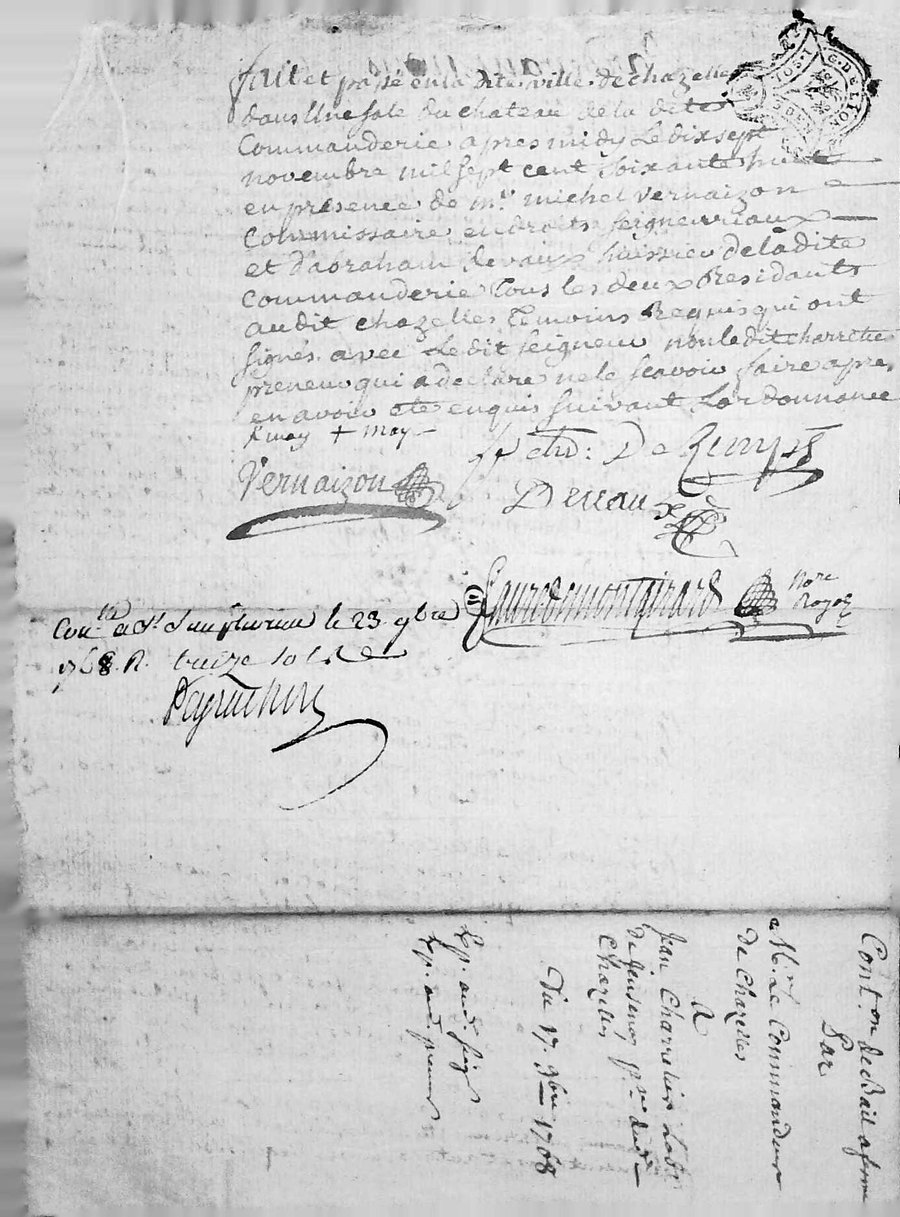 fait et passé en la dite ville de chazelle
dans Une sale du chateau de la dite
Commanderie apres midy Le dix sept
novembre mil sept cent soixante huit
en presence de mr. michel vernaizon
Commissaire en droits seigneuriaux
et d'abraham devaux huissier de la dite
Commanderie Tous les deux Residants
audit chazelles Temoins Requis qui ont
signés avec Le dit seigneur non le dit charretier
preneur qui a declare ne le scavoir faire apres
en avoir ete enquis suivant Lordonnance
+ may
G. DE LION
Vernaizon
De Remps
Devaux
Nore
Royal
Conlle a St. le 23 9bre
1768. R. treize sols
Cont.on de Bail a ferme
Par
a M.r Le Commandeur
de Chazelles
A
Jean Charretier Lab.r
de
Chazelles
Du 17. 9bre 1768
Exp. aud. seigr
Exp. aud. preneur